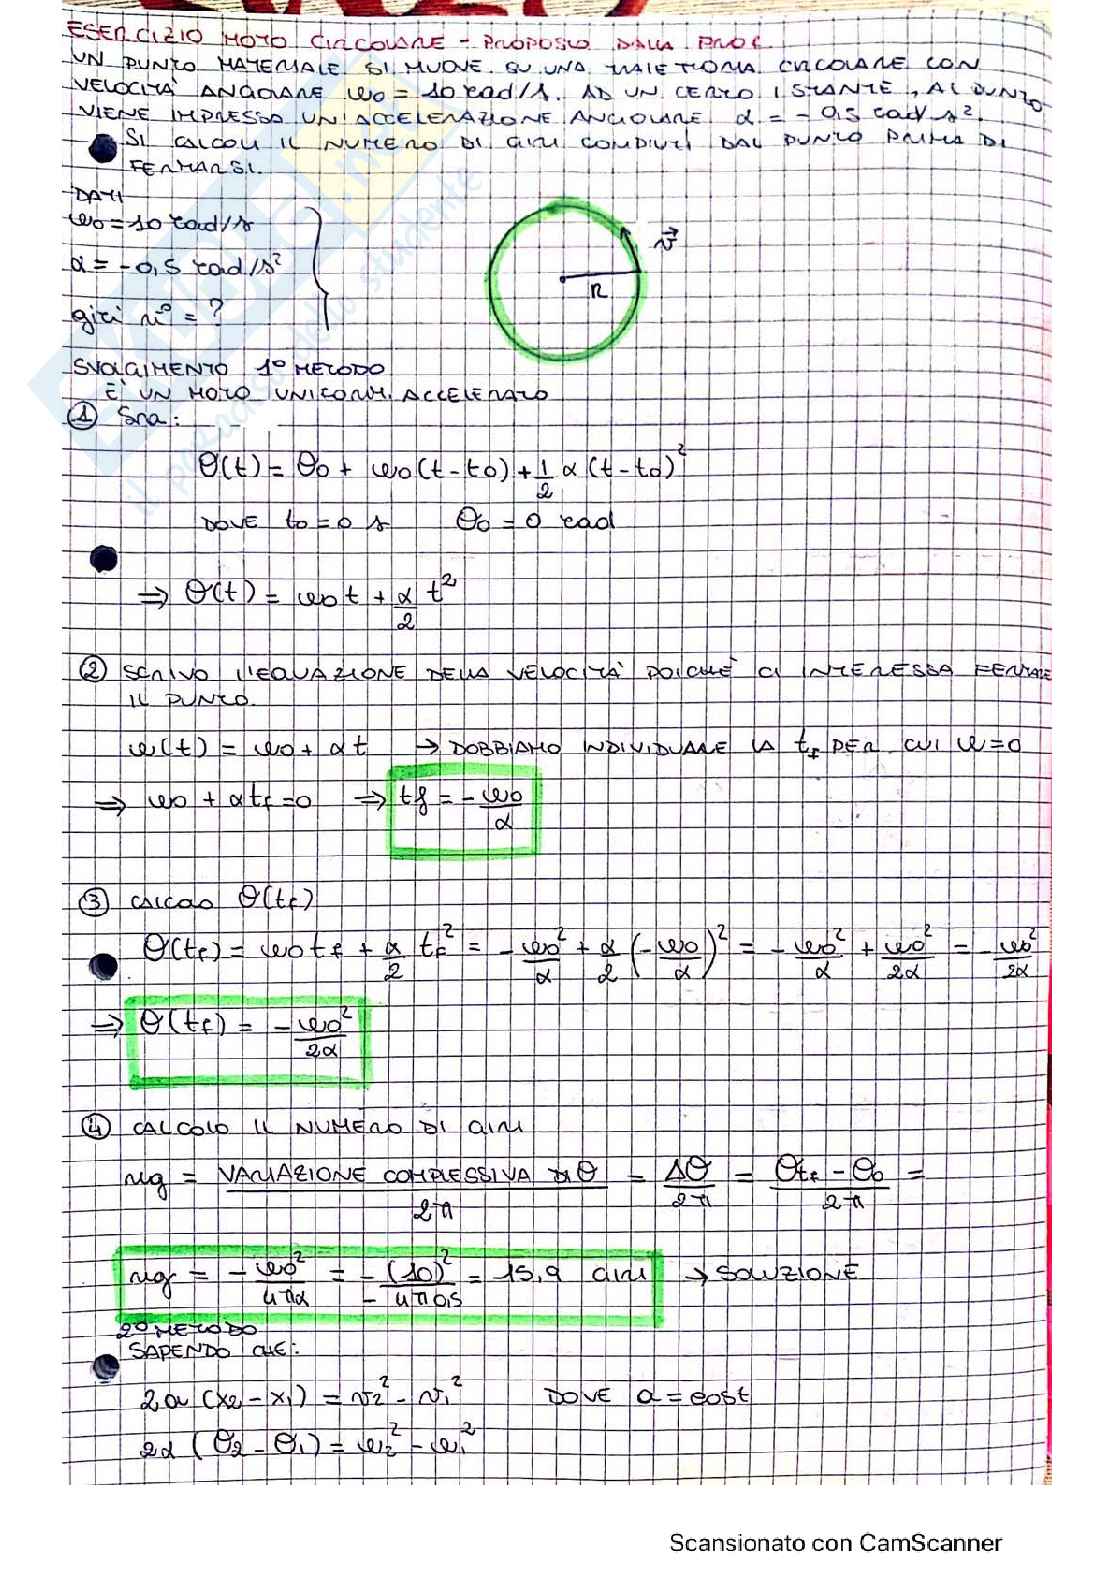 ESERCIZIO MOTO CIRCOLARE - PROPOSTO DALLA PROF.
UN PUNTO MATERIALE SI MUOVE SU UNA TRAIETTORIA CIRCOLARE CON
VELOCITÀ ANGOLARE ω0 = 10 rad/s. AD UN CERTO ISTANTE, AL PUNTO
VIENE IMPRESSO UN'ACCELERAZIONE ANGOLARE α = - 0,5 rad/s².
SI CALCOLI IL NUMERO DI GIRI COMPIUTI DAL PUNTO PRIMA DI
FERMARSI.
DATI
ω0 = 10 rad/s
α = - 0,5 rad/s²
giri n° = ?
v⃗
R
SVOLGIMENTO 1° METODO
È UN MOTO UNIFORM. ACCELERATO
① Sna:
θ(t) = θ0 + ω0 (t - t0) + 1/2 α (t - t0)²
DOVE t0 = 0 s θ0 = 0 rad
⇒ θ(t) = ω0 t + α/2 t²
② SCRIVO L'EQUAZIONE DELLA VELOCITÀ POICHÈ CI INTERESSA FERMARE
IL PUNTO.
ω(t) = ω0 + αt → DOBBIAMO INDIVIDUARE LA tf PER CUI ω = 0
⇒ ω0 + αtf = 0 ⇒ tf = - ω0/α
③ CALCOLO θ(tf)
θ(tf) = ω0 tf + α/2 tf² = - ω0²/α + α/2 (- ω0/α)² = - ω0²/α + ω0²/2α = - ω0²/2α
⇒ θ(tf) = - ω0²/2α
④ CALCOLO IL NUMERO DI GIRI
ng = VARIAZIONE COMPLESSIVA DI θ/2π = Δθ/2π = θtf - θ0/2π =
ng = - ω0²/4πα = - (10)²/- 4π0,5 = 15,9 GIRI → SOLUZIONE
2° METODO
SAPENDO CHE:
2a (x2 - x1) = v2² - v1² DOVE a = cost
2α (θ2 - θ1) = ω2² - ω1²
Scansionato con CamScanner